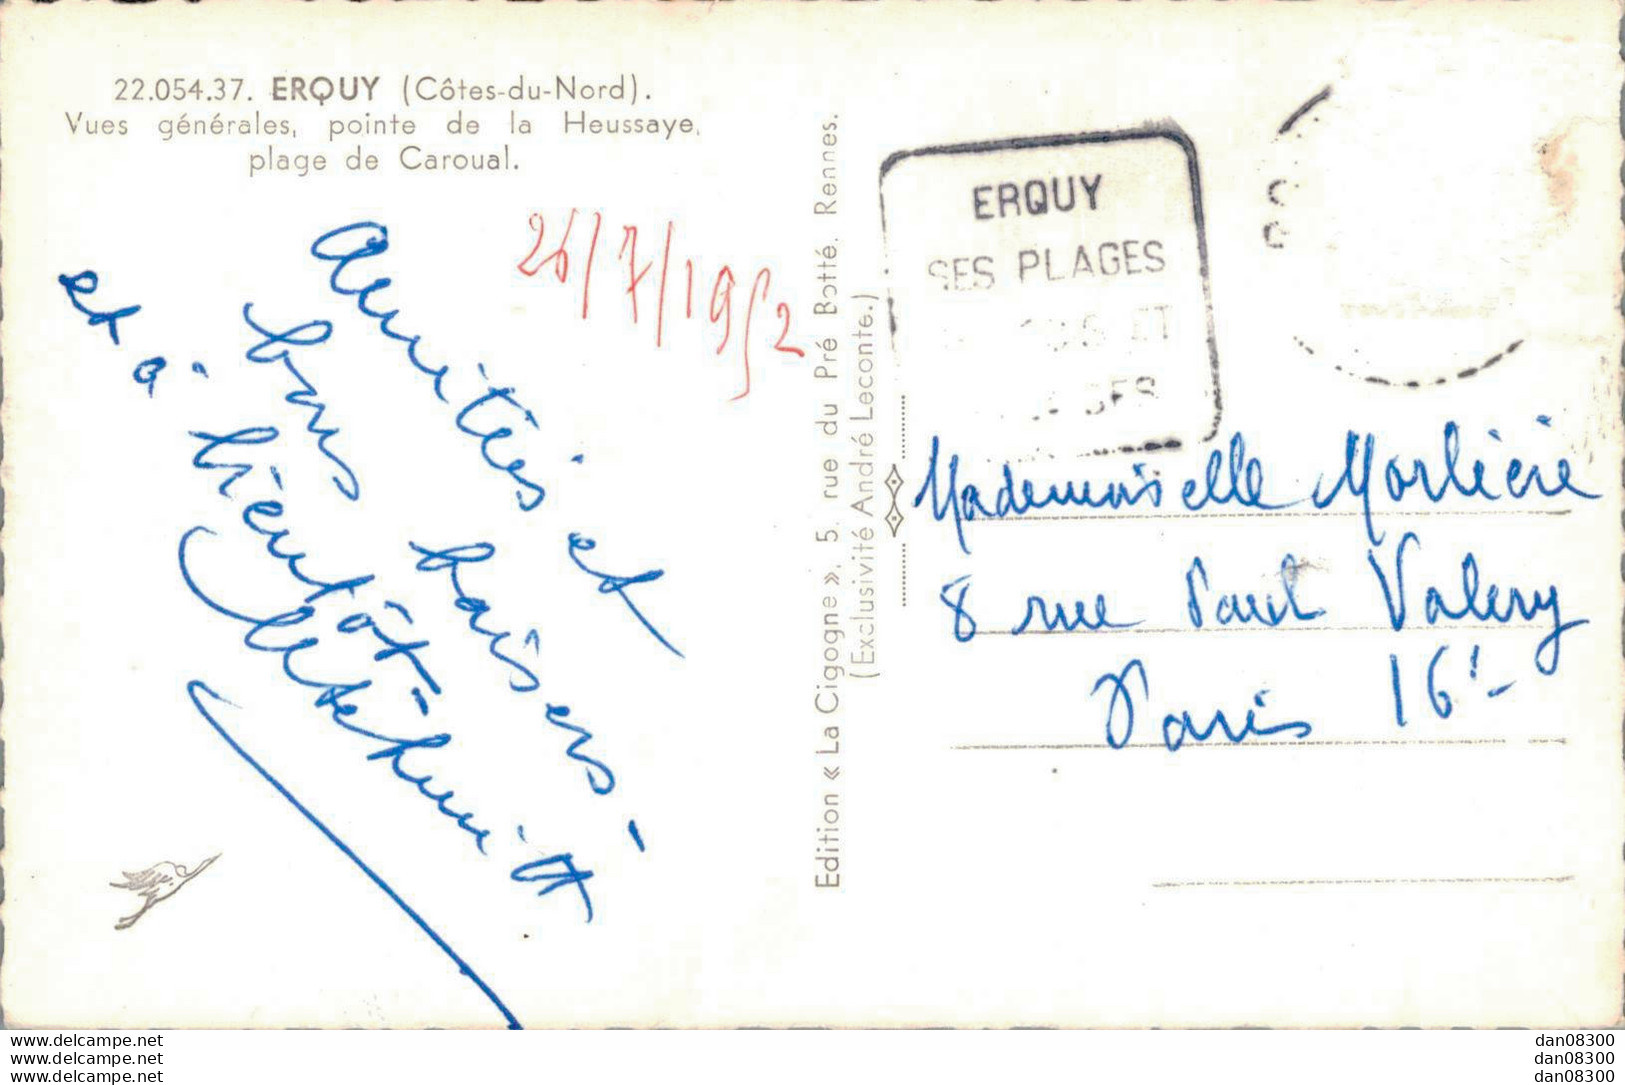 22.054.37. ERQUY (Côtes-du-Nord).
Vues générales, pointe de la Heussaye,
plage de Caroual.
26/7/1952
Amitiés et
bons baisers -
et à bientôt -
Edition « La Cigogne », 5, rue du Pré Botté. Rennes.
(Exclusivité André Leconte.)
ERQUY
SES PLAGES
Mademoiselle Morlière
8 rue Paul Valery
Paris 16e -
www.delcampe.net
www.delcampe.net
www.delcampe.net
dan08300
dan08300
dan08300